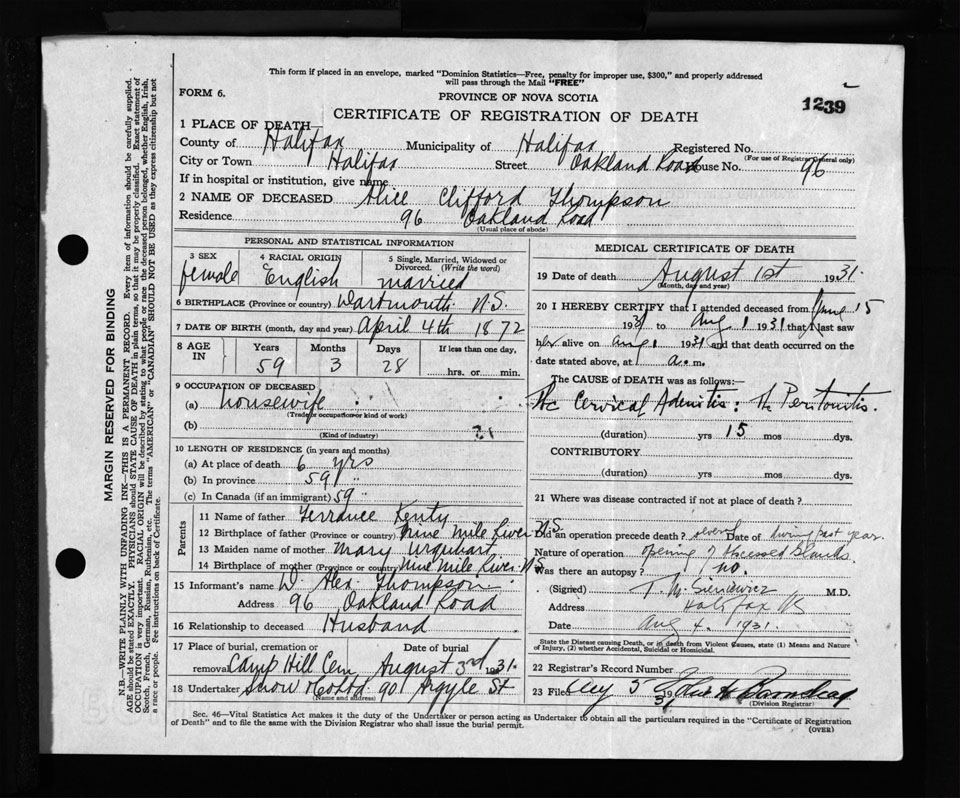 This form if placed in an envelope, marked "Dominion Statistics—Free, penalty for improper use, $300," and properly addressed
will pass through the Mail "FREE"
FORM 6.
PROVINCE OF NOVA SCOTIA
1239
CERTIFICATE OF REGISTRATION OF DEATH
1 PLACE OF DEATH—
County of Halifax Municipality of Halifax Registered No.
(For use of Registrar General only)
City or Town Halifax Street Oakland Road House No. 96
If in hospital or institution, give name
2 NAME OF DECEASED Alice Clifford Thompson
Residence 96 Oakland Road
(Usual place of abode)
PERSONAL AND STATISTICAL INFORMATION
3 SEX 4 RACIAL ORIGIN 5 Single, Married, Widowed or
Divorced. (Write the word)
female English married
6 BIRTHPLACE (Province or country) Dartmouth N.S.
7 DATE OF BIRTH (month, day and year) April 4th 1872
8 AGE IN Years Months Days If less than one day,
59 3 28 hrs. or min.
9 OCCUPATION OF DECEASED
(a) housewife
(Trade or occupation or kind of work)
(b)
(Kind of industry)
10 LENGTH OF RESIDENCE (in years and months)
(a) At place of death 6 yrs
(b) In province 59 "
(c) In Canada (if an immigrant) 59 "
Parents
11 Name of father Terrance Kenty
12 Birthplace of father (Province or country) Nine Mile River N.S.
13 Maiden name of mother Mary Urquhart
14 Birthplace of mother (Province or country) Nine Mile River N.S.
15 Informant's name W. Alex Thompson
Address 96 Oakland Road
16 Relationship to deceased Husband
17 Place of burial, cremation or Date of burial
removal Camp Hill Cem August 3rd 1931.
18 Undertaker Snow 90 Argyle St
(Name and address)
MEDICAL CERTIFICATE OF DEATH
19 Date of death August 1st 1931.
(Month, day and year)
20 I HEREBY CERTIFY that I attended deceased from June 15
1931 to Aug 1 1931 that I last saw
her alive on Aug 1 1931 and that death occurred on the
date stated above, at a. m.
The CAUSE of DEATH was as follows:—
Tbc Cervical Adenitis: Tb Peritonitis.
(duration) yrs 15 mos dys.
CONTRIBUTORY
(duration) yrs mos dys.
21 Where was disease contracted if not at place of death?
Did an operation precede death? several Date of during past year.
Nature of operation opening of Abscessed Glands
Was there an autopsy? no.
(Signed) T. M. Sieniewicz M.D.
Address Halifax
Date Aug 4. 1931.
State the Disease causing Death, or in death from Violent Causes, state (1) Means and Nature
of Injury, (2) whether Accidental, Suicidal or Homicidal.
22 Registrar's Record Number
23 Filed Aug 5 1931
(Division Registrar)
Sec. 46—Vital Statistics Act makes it the duty of the Undertaker or person acting as Undertaker to obtain all the particulars required in the "Certificate of Registration
of Death" and to file the same with the Division Registrar who shall issue the burial permit.
(OVER)
MARGIN RESERVED FOR BINDING
N.B.—WRITE PLAINLY WITH UNFADING INK—THIS IS A PERMANENT RECORD. Every item of information should be carefully supplied.
AGE should be stated EXACTLY. PHYSICIANS should STATE CAUSE OF DEATH in plain terms, so that it may be properly classified. Exact statement of
OCCUPATION is very important. RACIAL ORIGIN will be described by stating to what people or race the deceased person belonged, whether English, Irish,
Scotch, French, German, Russian, Ruthenian, etc. The terms "AMERICAN" or "CANADIAN" SHOULD NOT BE USED as they express citizenship but not
a race or people. See instructions on back of Certificate.